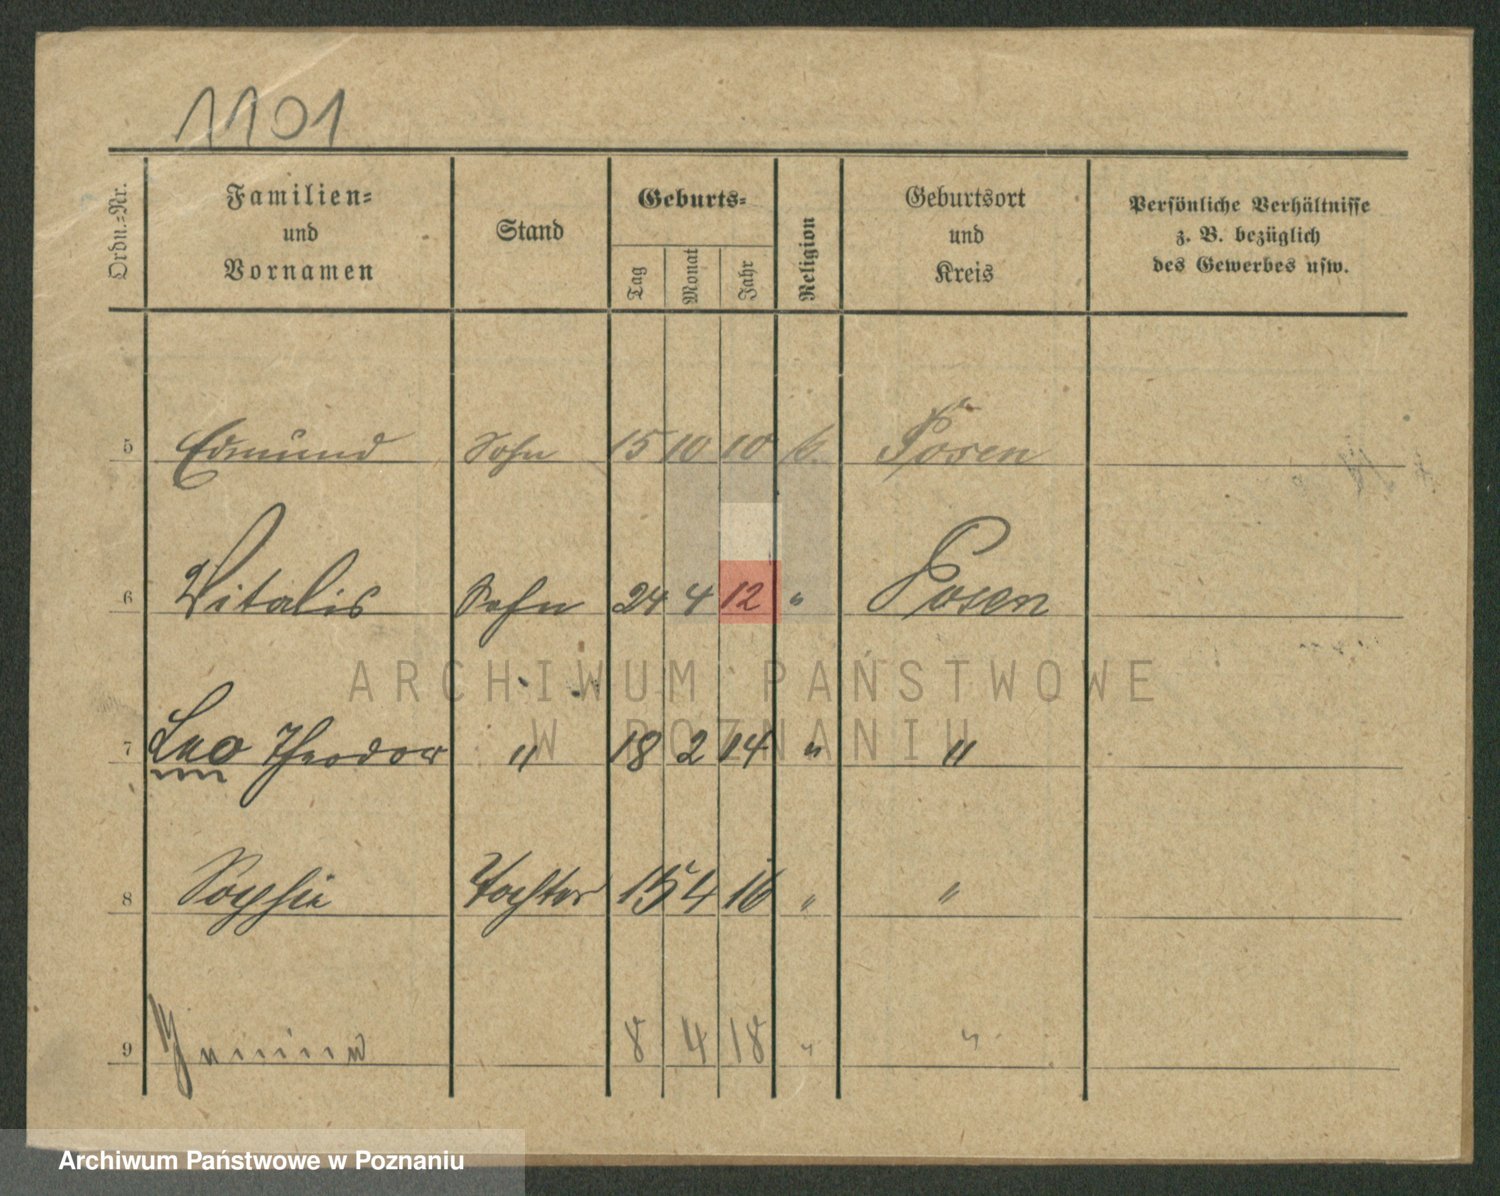 1101
Ordn.=Nr.
Familien=
und
Vornamen
Stand
Geburts=
Tag
Monat
Jahr
Religion
Geburtsort
und
Kreis
Persönliche Verhältnisse
z. B. bezüglich
des Gewerbes usw.
5 Edmund Sohn 15 10 10 k. Posen
6 Vitalis Sohn 24 4 12 " Posen
7 Leo Theodor " 18 2 14 " "
8 Sophie Tochter 15 4 16 " "
9 8 4 18 " "
ARCHIWUM PAŃSTWOWE
W POZNANIU
Archiwum Państwowe w Poznaniu